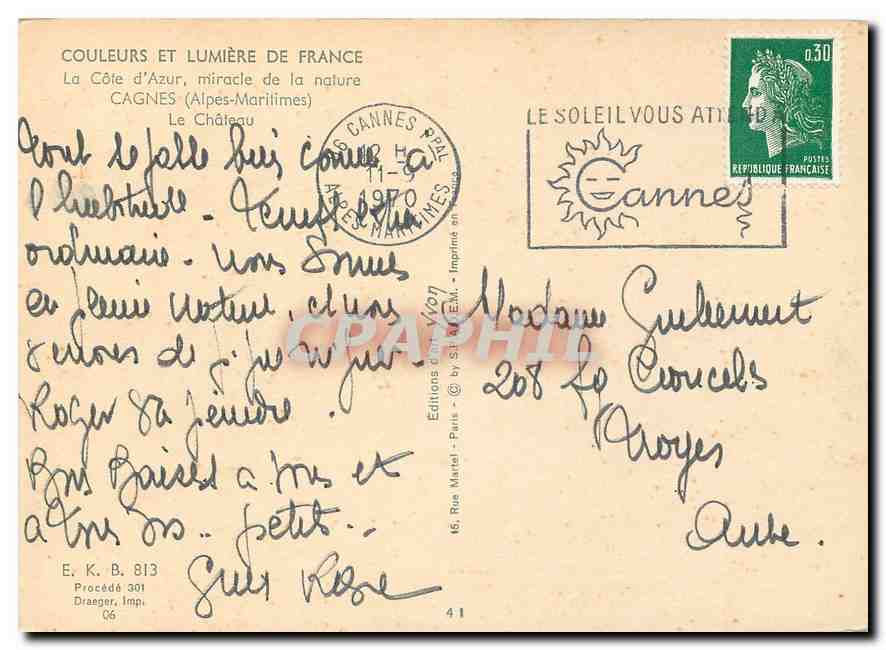 COULEURS ET LUMIÈRE DE FRANCE
La Côte d'Azur, miracle de la nature
CAGNES (Alpes-Maritimes)
Le Château
Tout se passe bien comme à
l'habitude. Temps
ordinaire. Nous sommes
en pleine nature, et nous
venons de
Roger va peindre.
Bons Baisers à tous et
à tous vos petits.
Roger
E. K. B. 813
Procédé 301
Draeger, Imp.
06
06 CANNES PPAL
12 H
11-9
1970
ALPES-MARITIMES
LE SOLEIL VOUS ATTEND A
Cannes
0,30
POSTES
REPUBLIQUE FRANÇAISE
Editions d'art Yvon
15, Rue Martel - Paris - © by S.P.A.D.E.M. - Imprimé en France
Madame
208 Fg Croncels
Troyes
Aube.
41
CPAPHIL